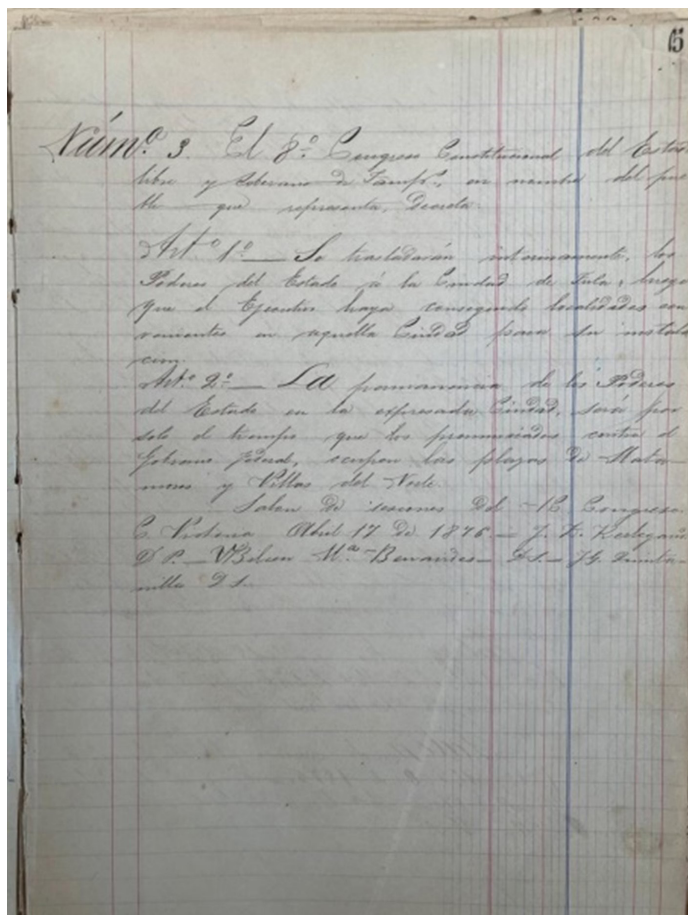 15
Núm.º 3. El 8.º Congreso Constitucional del Estado
libre y Soberano de Tamps., en nombre del pue
blo que representa, Decreta
Art.º 1.º — Se trasladarán interinamente, los
Poderes del Estado á la Ciudad de Tula, luego
que el Ejecutivo haya conseguido localidades con
venientes en aquella Ciudad para su instala
cion.
Art.º 2.º — La permanencia de los Poderes
del Estado en la expresada Ciudad, será por
solo el tiempo que los pronunciados contra el
Gobierno federal, ocupen las plazas de Mata
moros y Villas del Norte.
Salon de sesiones del H. Congreso.
C. Victoria Abril 17 de 1876 — J.
D. P. — M.ª Benavides — D. S. — J. G. Quinta
nilla D. S.